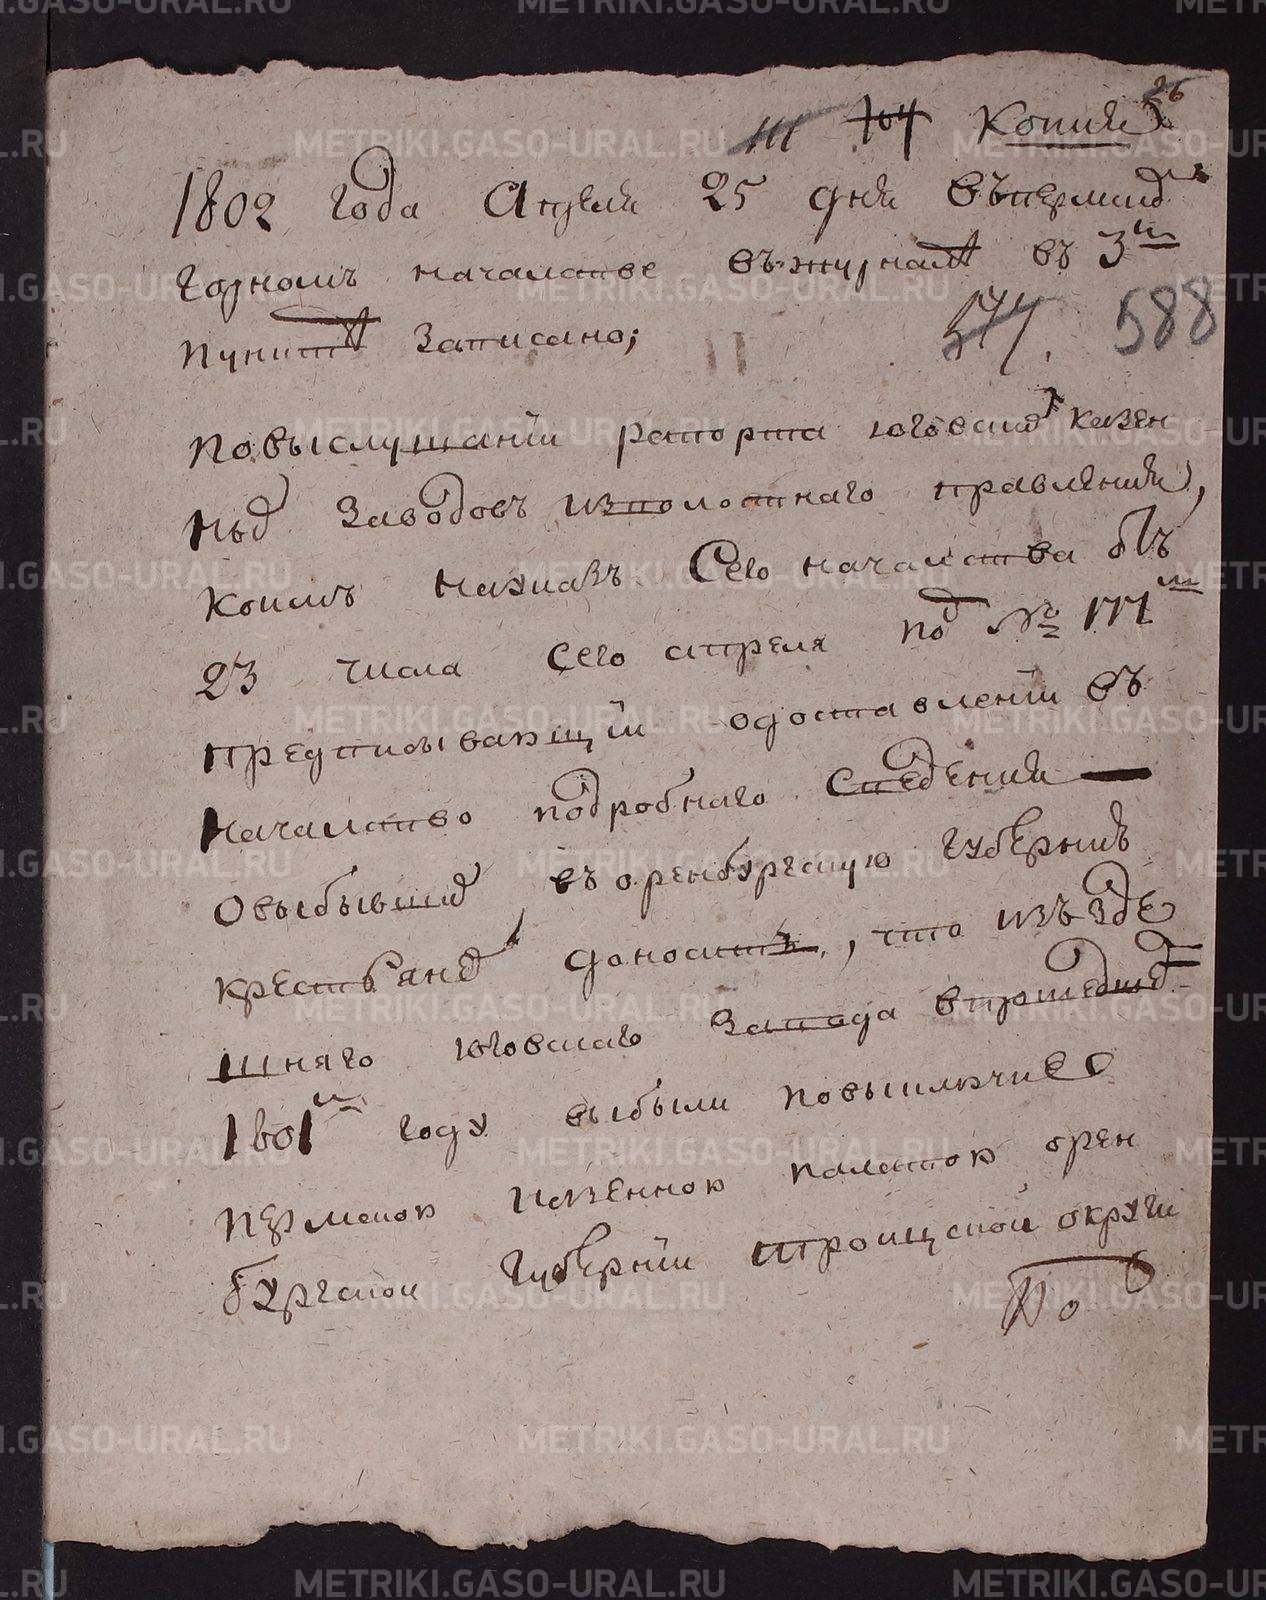 26
111 104 Копия
1802 года Апреля 25 дня въпермском
Горномъ началстве въжурнале въ 3м
пункте записано;
577. 588
Повыслушаніи рапорта юговских казен
ных заводовъ исполостнаго правления,
коимъ науказъ Сего началства отъ
23 числа Сего апреля под №
предписывающій одоставленіи въ
началство подробнаго сведения
Овыбывших въоренбургскую губернию
крестьянех доноситъ, что изъзде
шняго юговскаго завода впрошедшем
1801м году выбыли повыключке
пермской казенной палатой орен
бургской губерніи троицкой округи
По